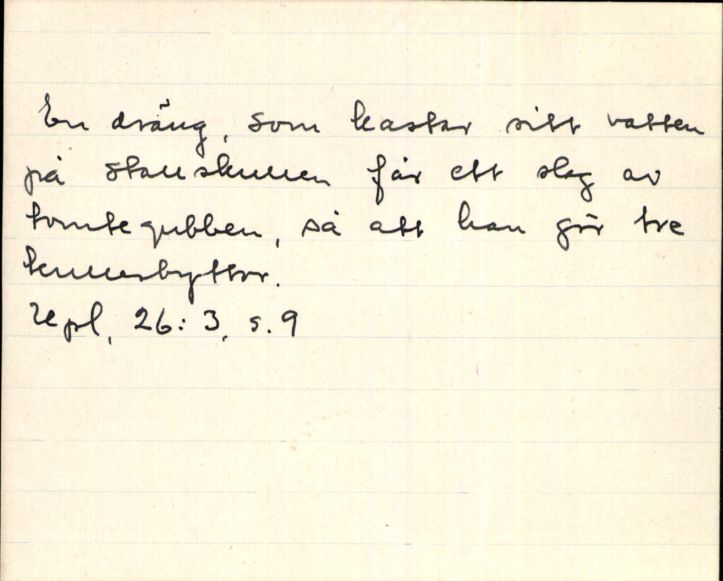 En dräng, som kastar sitt vatten
på stallskullen får ett slag av
tomtegubben, så att han gör tre
kullerbyttor.
Upl, 26:3, s. 9